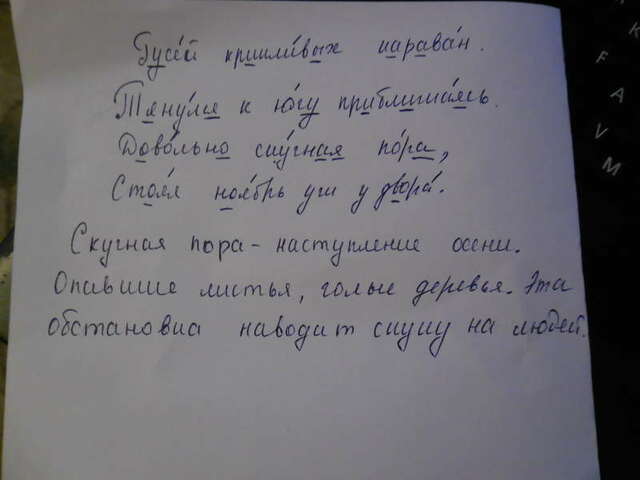 Гусе́й крикли́вых карава́н.
Тяну́лся к ю́гу приближа́ясь.
Дово́льно ску́чная по́ра,
Стоя́л ноя́брь уж у двора́.
Скучная пора - наступление осени.
Опавшие листья, голые деревья. Эта
обстановка наводит скуку на людей.
K
F
A
V
M